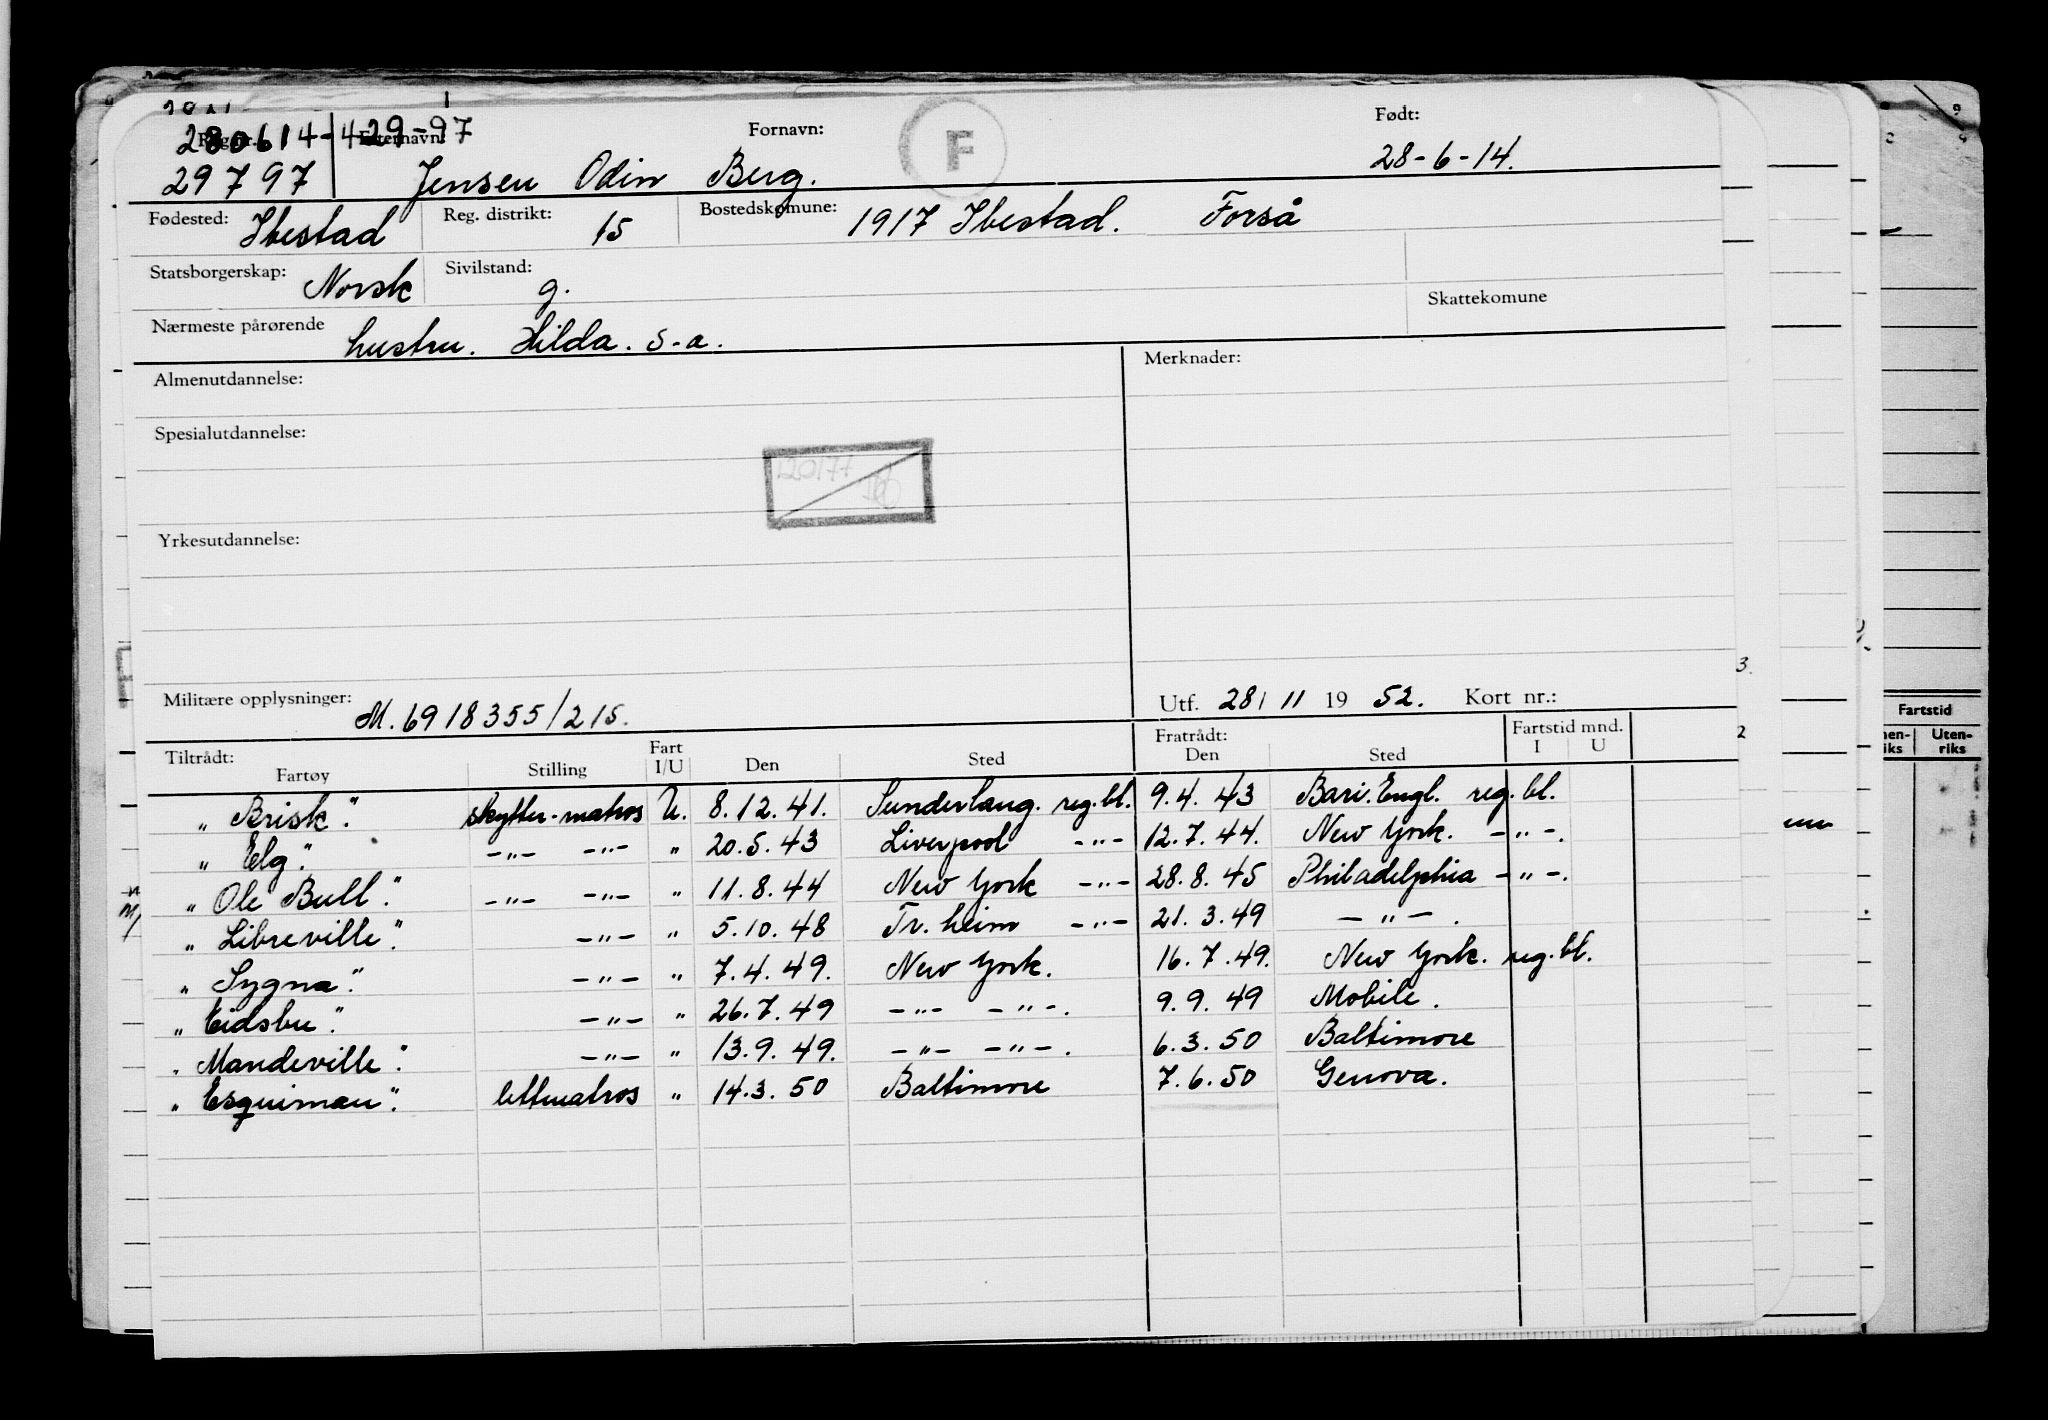 280614-429-97
Reg. nr. Etternavn: Fornavn: F Født:
29797 Jensen Odin Berg. 28-6-14.
Fødested: Ibestad Reg. distrikt: 15 Bostedskomune: 1917 Ibestad. Forså
Statsborgerskap: Norsk Sivilstand: g.
Skattekomune
Nærmeste pårørende hustru. Hilda. s.a.
Almenutdannelse: Merknader:
Spesialutdannelse:
Yrkesutdannelse:
Militære opplysninger: M. 6918355/215. Utf. 28/11 1952. Kort nr.:
Tiltrådt: Fart Fratrådt: Fartstid mnd.
Fartøy Stilling I/U Den Sted Den Sted I U
"Brisk". skytter-matros U. 8.12.41. Sunderlang. reg.bl. 9.4.43 Bari.Engl. reg.bl.
"Elg". -"- -"- " 20.5.43 Liverpool -"- 12.7.44. New York. -"-.
"Ole Bull". -"- -"- " 11.8.44 New York -"- 28.8.45 Philadelphia -"-.
"Libreville". -"- " 5.10.48 Tr.heim -"- 21.3.49 -"-.
"Sygna". -"- " 7.4.49. New York. 16.7.49. New York. reg.bl.
"Eidsbu". -"- " 26.7.49 -"- -"-. 9.9.49 Mobile.
"Mandeville". -"- " 13.9.49. -"- -"-. 6.3.50 Baltimore
"Esquimau". lettmatros " 14.3.50 Baltimore 7.6.50 Genova.
Fartstid
Uten-
riks